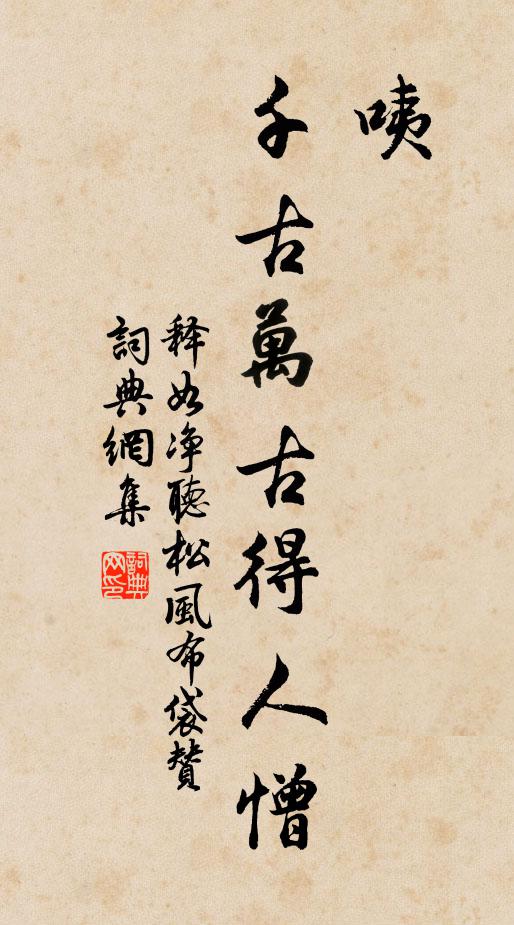 咦
千古萬古得人憎
释如净聽松風布袋贊
詞典網集
詞典网印